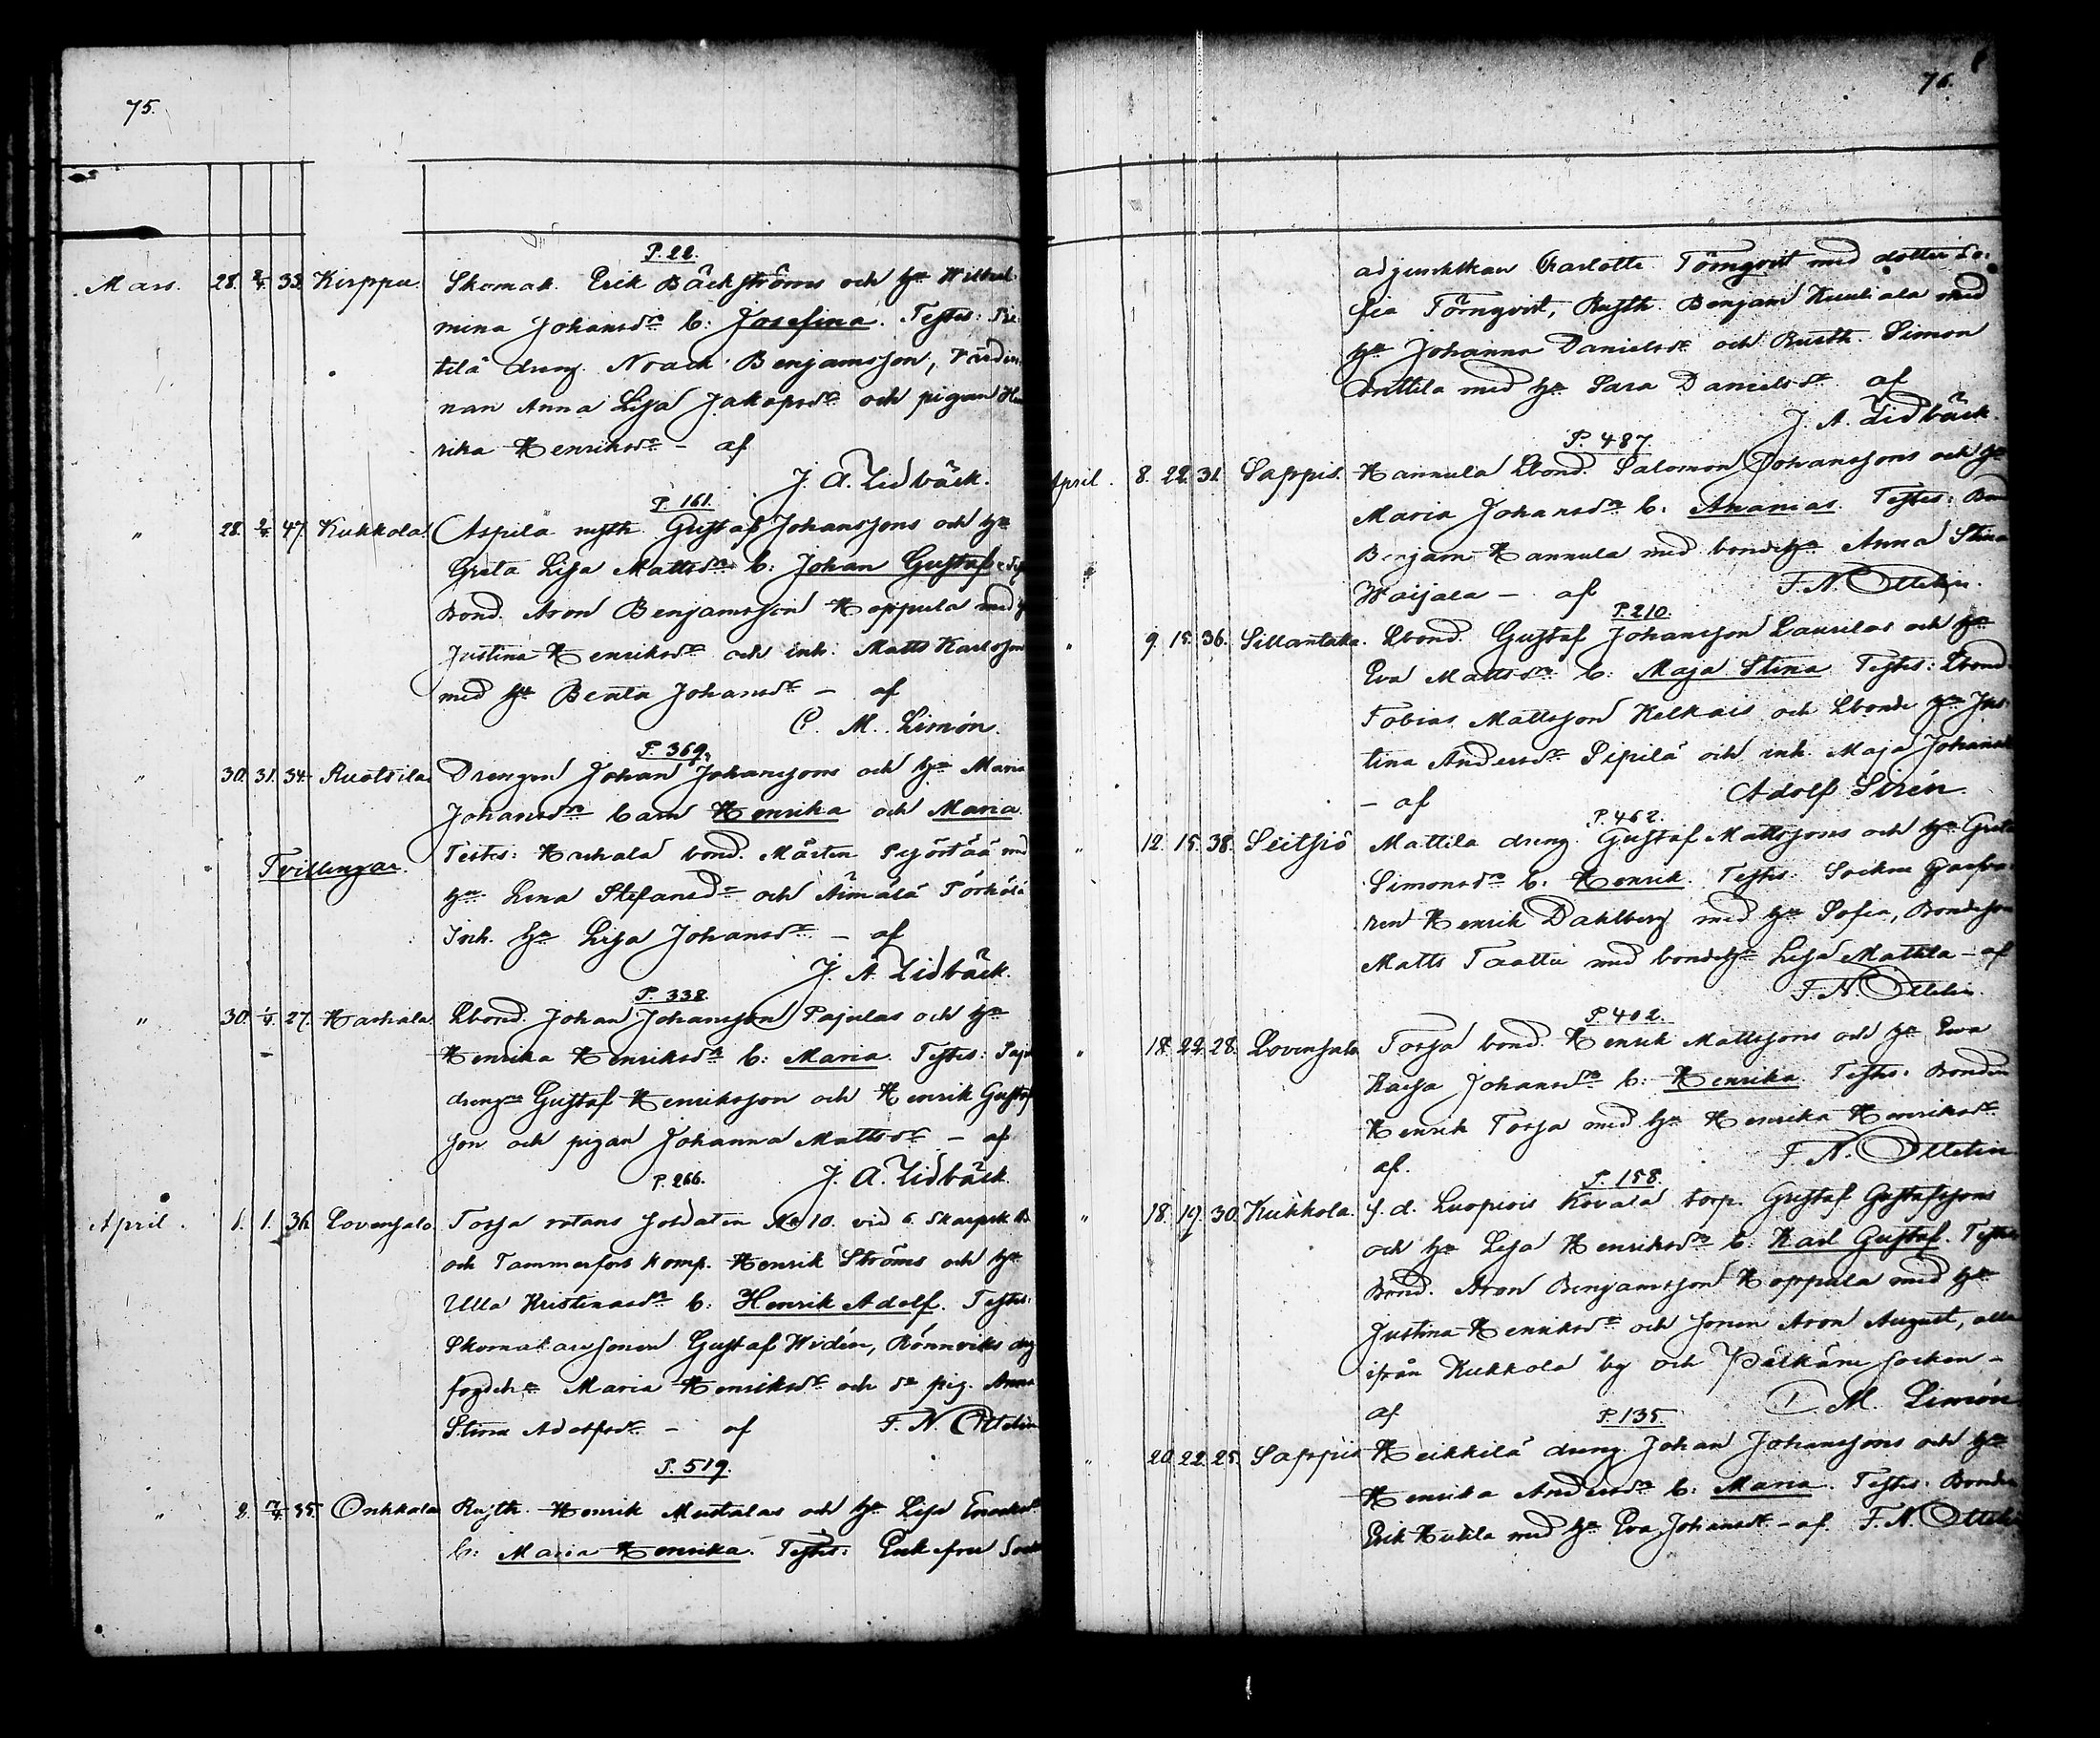 75.
P. 22.
Mars. 28. 2/4 33. Kirppu. Skomak. Erik Bäckströms och h:u Wilhel-
mina Johansd:r b: Josefina. Testes:
tilä dreng Noach Benjamsson, Värdin-
nan Anna Lisa Jakopsd:r och pigan Hen
rika Henriksd:r – af
J. A. Lidbäck.
P. 161.
" 28. 2/4 47. Kukkola. Aspila rusth. Gustaf Johanssons och h:u
Greta Lisa Mattsd:r b: Johan Gustaf.
Bond. Aron Benjamsson Hoppula med h
Justina Henriksd:r och inh. Matts Karlsson
med h:u Beata Johansd:r – af
C. M. Limón.
P. 369.
" 30. 31. 34. Ruotsila Drengen Johan Johanssons och h:u Maria
Johansd:r barn Henrika och Maria.
Tvillingar. Testes: Harhala bond. Mårten med
h:u Lena Stefansd:r och Äimälä
Inh. h:u Lisa Johansd:r – af
J. A. Lidbäck.
P. 338.
" 30. 1/4. 27. Harhala Lbond. Johan Johansson Pajulas och h:u
Henrika Henriksd:r b: Maria. Testes:
dreng:ne Gustaf Henriksson och Henrik Gustaf
son och pigan Johanna Mattsd:r – af
J. A. Lidbäck.
P. 266.
April. 1. 1. 36. Lovensalo Torja rotans soldaten No 10. vid 6. Skarpsk. B.
och Tammerfors Komp. Henrik Ströms och h:u
Ulla Kristinasd:r b: Henrik Adolf. Testes:
Skomakaresonen Gustaf Widén, Rönnviks
Maria Henriksd:r och d:o pig. Anna
Stina Adolfsd:r – af F. N. Ottelin
P. 519.
" 2. 7/4 35. Onkkala Rusth. Henrik Mustalas och h:u Lisa
b: Maria Henrika. Testes: Enkefru

76.
adjunktskan Charlotte Törnqvist med dotter So-
fia Törnqvist, Rusth. Benjam med
h:u Johanna Danielsd:r och Rusth. Simon
Anttila med h:u Sara Danielsd:r af
J. A. Lidbäck.
P. 487.
April. 8. 22. 31. Sappis. Hannula Lbond. Salomon Johanssons och h:u
Maria Johansd:r b: Ananias. Testes:
Benjam Hannula med bondeh:u Anna Stina
Waijala – af F. N. Ottelin.
P. 210.
" 9. 15. 36. Sillantaka. Lbond. Gustaf Johansson Laurilas och h:u
Eva Mattsd:r b: Maja Stina Testes: Lbond.
Tobias Mattsson Kelkais och Lbonde h:u Jus-
tina Andersd:r Sipilä och inh. Maja Johansd
– af Adolf Sirén.
P. 462.
" 12. 15. 38. Seitsiö Mattila dreng. Gustaf Mattssons och h:u Greta
Simonsd:r b: Henrik. Testes: Socken Garfva-
ren Henrik Dahlberg med h:u Sofia, Bondeson
Matts Taatu med bondeh:u Lisa Mattila – af
F. N. Ottelin.
P. 402.
" 18. 22. 28. Lovensalo Torja bond. Henrik Mattssons och h:u Eva
Kaisa Johansd:r b: Henrika Testes: Bonden
Henrik Torja med h:u Henrika Henriksd:r
af. F. N. Ottelin
P. 158.
" 18. 19. 30. Kukkola. f. d. Luopiois Kovala torp. Gustaf Gustafssons
och h:u Lisa Henriksd:r b: Karl Gustaf. Testes
Bond. Aron Benjamsson Hoppula med h:u
Justina Henriksd:r och sonen Aron August, alla
ifrån Kukkola by och Pälkäne socken –
af C. M. Limón
P. 135.
" 20. 22. 25. Sappis Heikkilä dreng. Johan Johanssons och h:u
Henrika Andersd:r b: Maria. Testes: Bonden
Erik Heikkilä med h:u Eva Johansd:r – af F. N. Ottelin